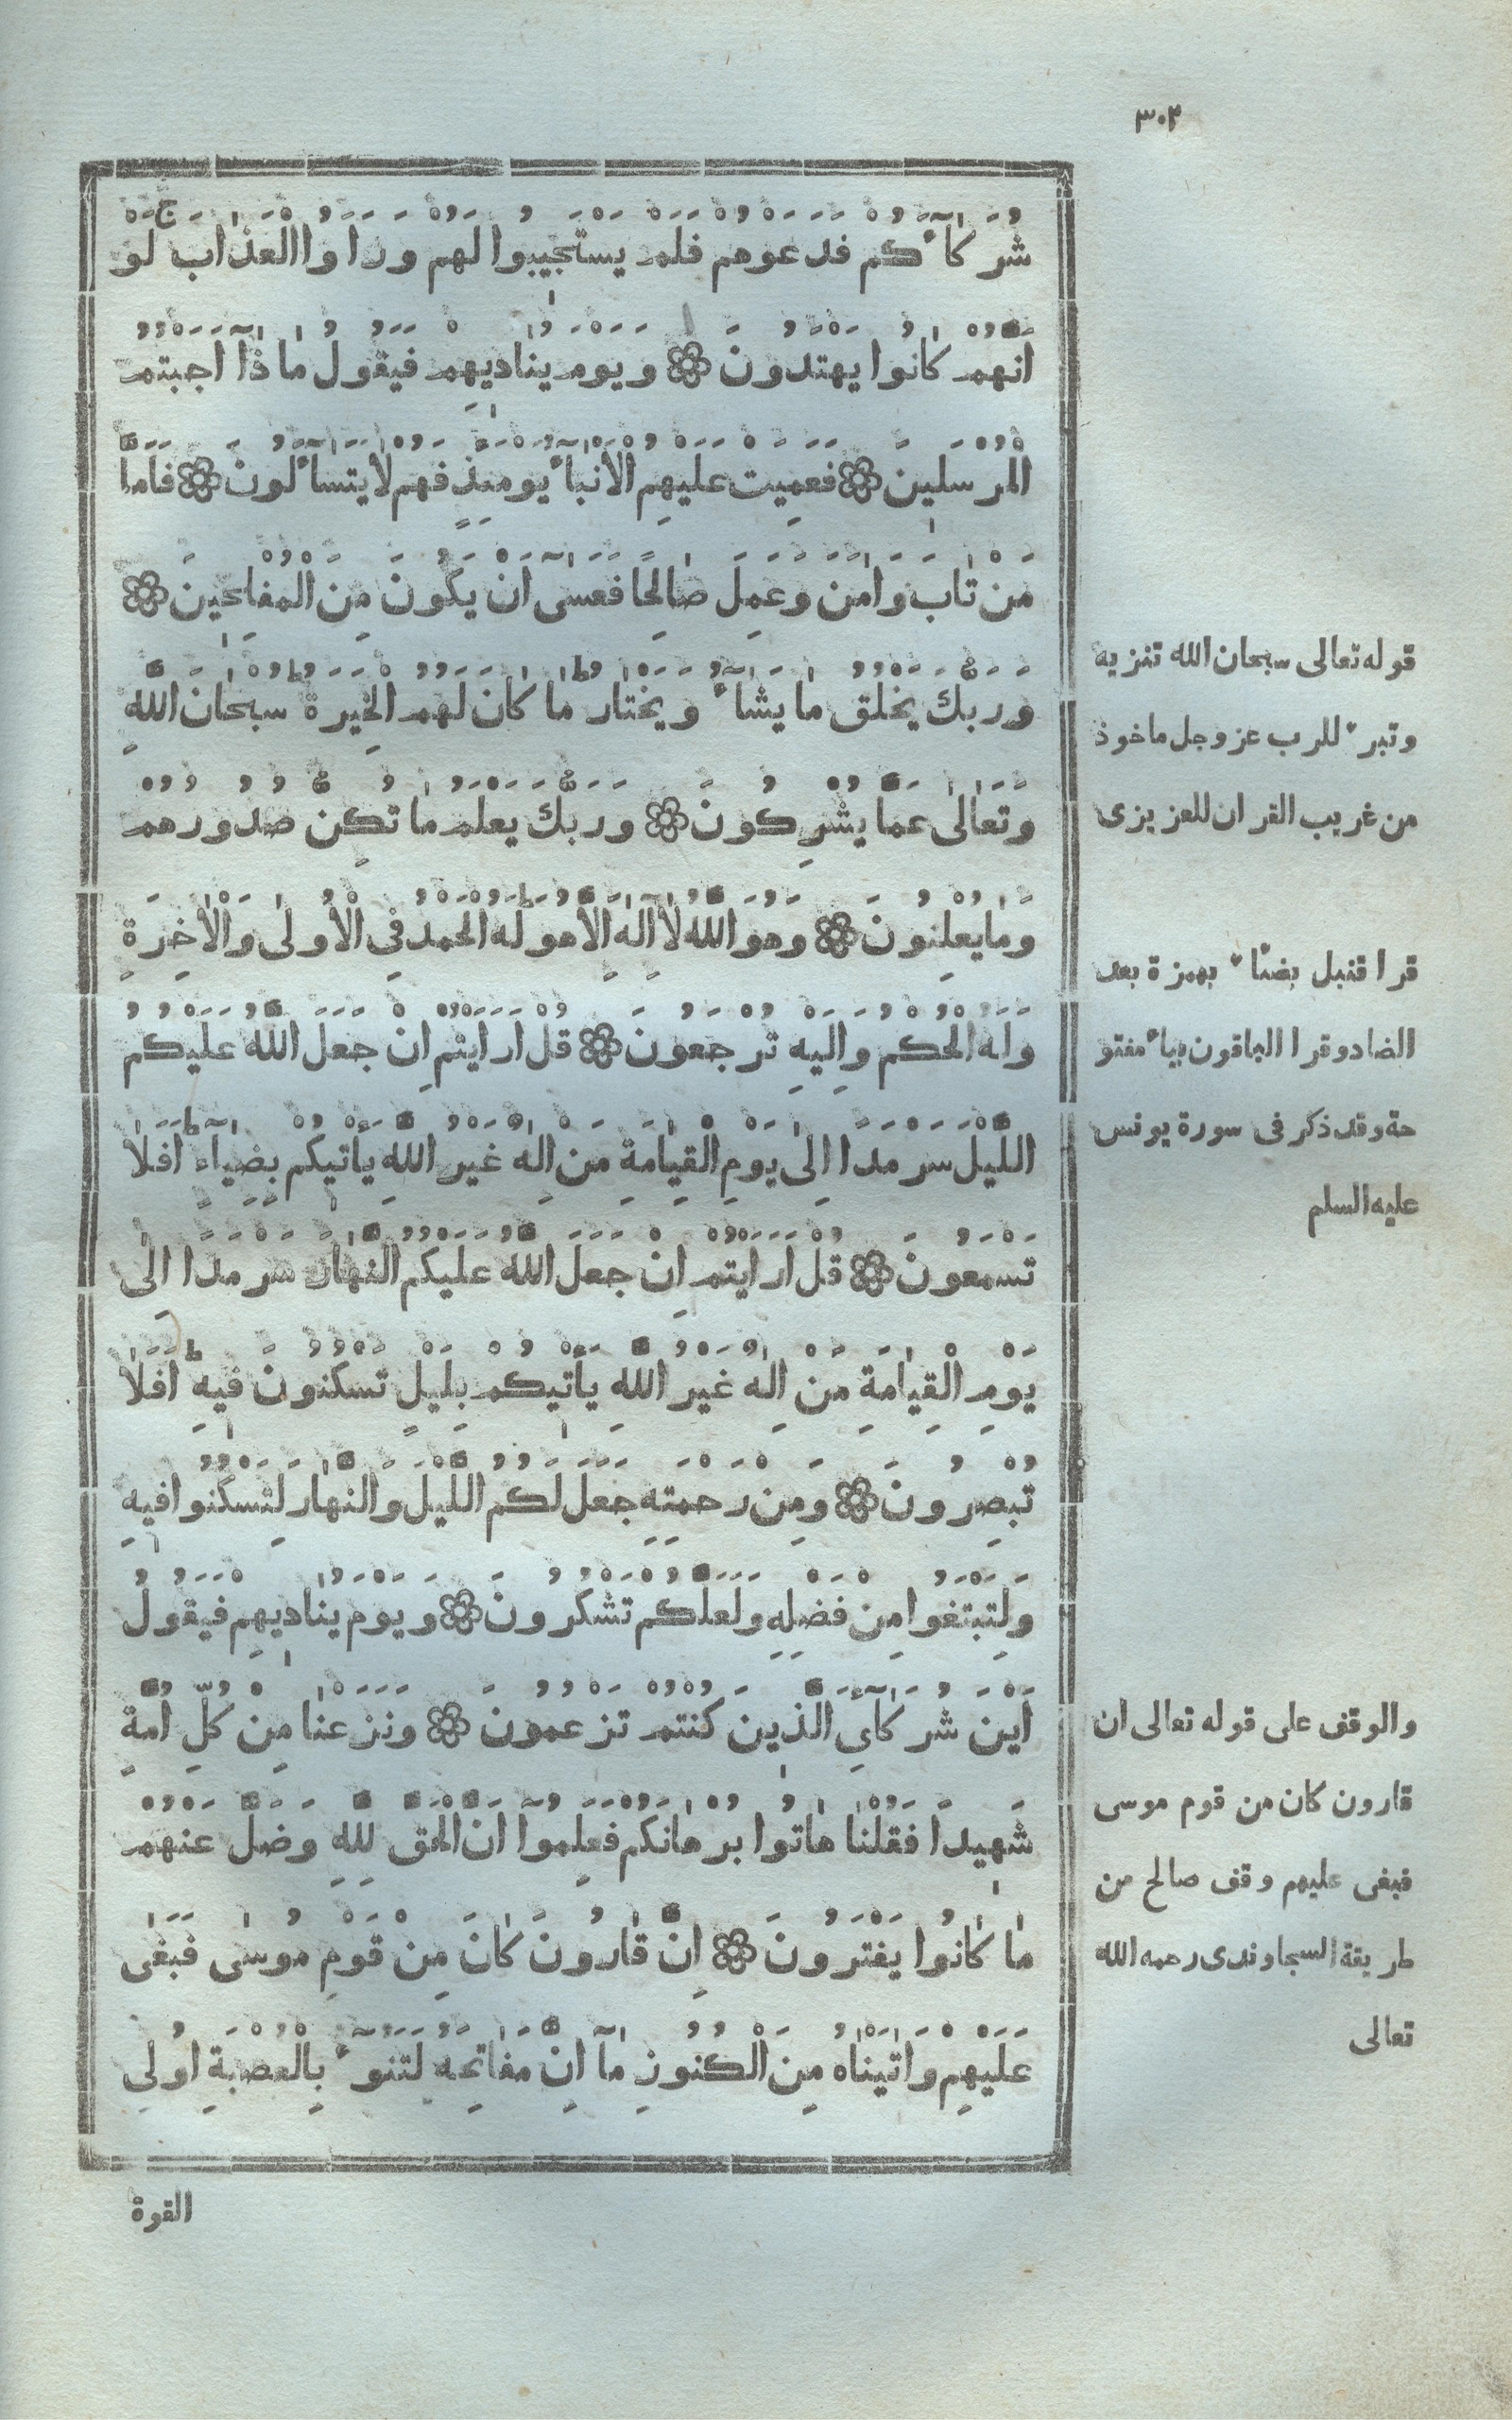 ٣٠٢
شُرَكَآءَكُمْ فَدَعَوْهُمْ فَلَمْ يَسْتَجٖيبُوا لَهُمْ وَرَاَوُا الْعَذَابَۚ لَوْ
اَنَّهُمْ كَانُوا يَهْتَدُونَ ۞ وَيَوْمَ يُنَادٖيهِمْ فَيَقُولُ مَاذَآ اَجَبْتُمُ
الْمُرْسَلٖينَ ۞ فَعَمِيَتْ عَلَيْهِمُ الْاَنْبَآءُ يَوْمَئِذٍ فَهُمْ لَا يَتَسَآءَلُونَ ۞ فَاَمَّا
مَنْ تَابَ وَاٰمَنَ وَعَمِلَ صَالِحًا فَعَسٰىٓ اَنْ يَكُونَ مِنَ الْمُفْلِحٖينَ ۞
وَرَبُّكَ يَخْلُقُ مَا يَشَآءُ وَيَخْتَارُؕ مَا كَانَ لَهُمُ الْخِيَرَةُؕ سُبْحَانَ اللّٰهِ
وَتَعَالٰى عَمَّا يُشْرِكُونَ ۞ وَرَبُّكَ يَعْلَمُ مَا تُكِنُّ صُدُورُهُمْ
وَمَا يُعْلِنُونَ ۞ وَهُوَ اللّٰهُ لَآ اِلٰهَ اِلَّا هُوَؕ لَهُ الْحَمْدُ فِى الْاُولٰى وَالْاٰخِرَةِ
وَلَهُ الْحُكْمُ وَاِلَيْهِ تُرْجَعُونَ ۞ قُلْ اَرَاَيْتُمْ اِنْ جَعَلَ اللّٰهُ عَلَيْكُمُ
الَّيْلَ سَرْمَدًا اِلٰى يَوْمِ الْقِيَامَةِ مَنْ اِلٰهٌ غَيْرُ اللّٰهِ يَاْتٖيكُمْ بِضِيَآءٍؕ اَفَلَا
تَسْمَعُونَ ۞ قُلْ اَرَاَيْتُمْ اِنْ جَعَلَ اللّٰهُ عَلَيْكُمُ النَّهَارَ سَرْمَدًا اِلٰى
يَوْمِ الْقِيَامَةِ مَنْ اِلٰهٌ غَيْرُ اللّٰهِ يَاْتٖيكُمْ بِلَيْلٍ تَسْكُنُونَ فٖيهِؕ اَفَلَا
تُبْصِرُونَ ۞ وَمِنْ رَحْمَتِهٖ جَعَلَ لَكُمُ الَّيْلَ وَالنَّهَارَ لِتَسْكُنُوا فٖيهِ
وَلِتَبْتَغُوا مِنْ فَضْلِهٖ وَلَعَلَّكُمْ تَشْكُرُونَ ۞ وَيَوْمَ يُنَادٖيهِمْ فَيَقُولُ
اَيْنَ شُرَكَآئِىَ الَّذٖينَ كُنْتُمْ تَزْعُمُونَ ۞ وَنَزَعْنَا مِنْ كُلِّ اُمَّةٍ
شَهٖيدًا فَقُلْنَا هَاتُوا بُرْهَانَكُمْ فَعَلِمُوٓا اَنَّ الْحَقَّ لِلّٰهِ وَضَلَّ عَنْهُمْ
مَا كَانُوا يَفْتَرُونَ ۞ اِنَّ قَارُونَ كَانَ مِنْ قَوْمِ مُوسٰى فَبَغٰى
عَلَيْهِمْ وَاٰتَيْنَاهُ مِنَ الْكُنُوزِ مَآ اِنَّ مَفَاتِحَهُ لَتَنُوٓءُ بِالْعُصْبَةِ اُولِى
القوة
قوله تعالى سبحان الله تنزيه
وتبرء للرب عز وجل ماخوذ
من غريب القران للعزيزى
قرا قنبل بضئاء بهمزة بعد
الضاد وقرا الباقون بياء مفتو
حة وقد ذكر فى سورة يونس
عليه السلم
والوقف على قوله تعالى ان
قارون كان من قوم موسى
فبغى عليهم وقف صالح من
طريقة السجاوندى رحمه الله
تعالى